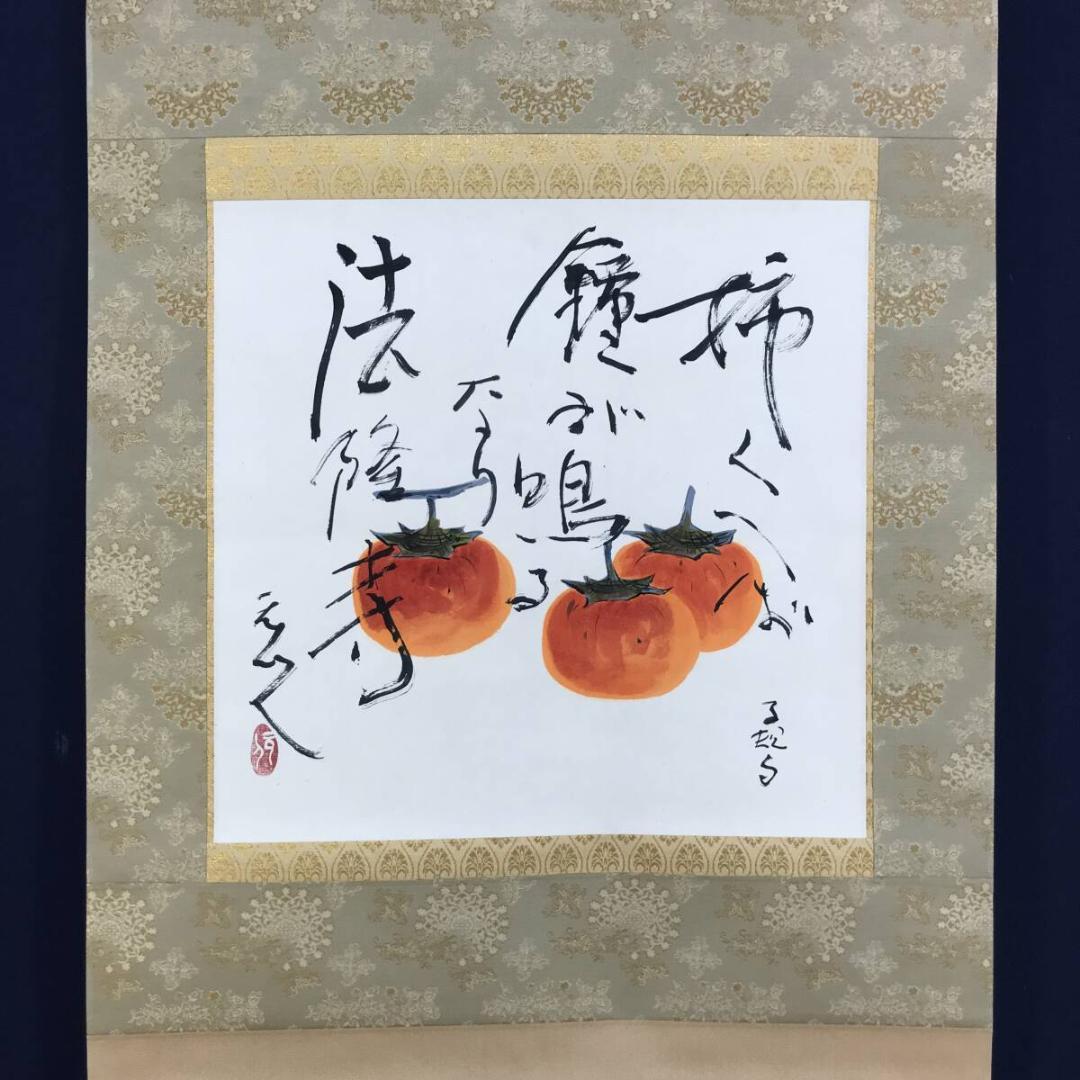 柿くへば
鐘が鳴る
なり
法隆寺
子規句